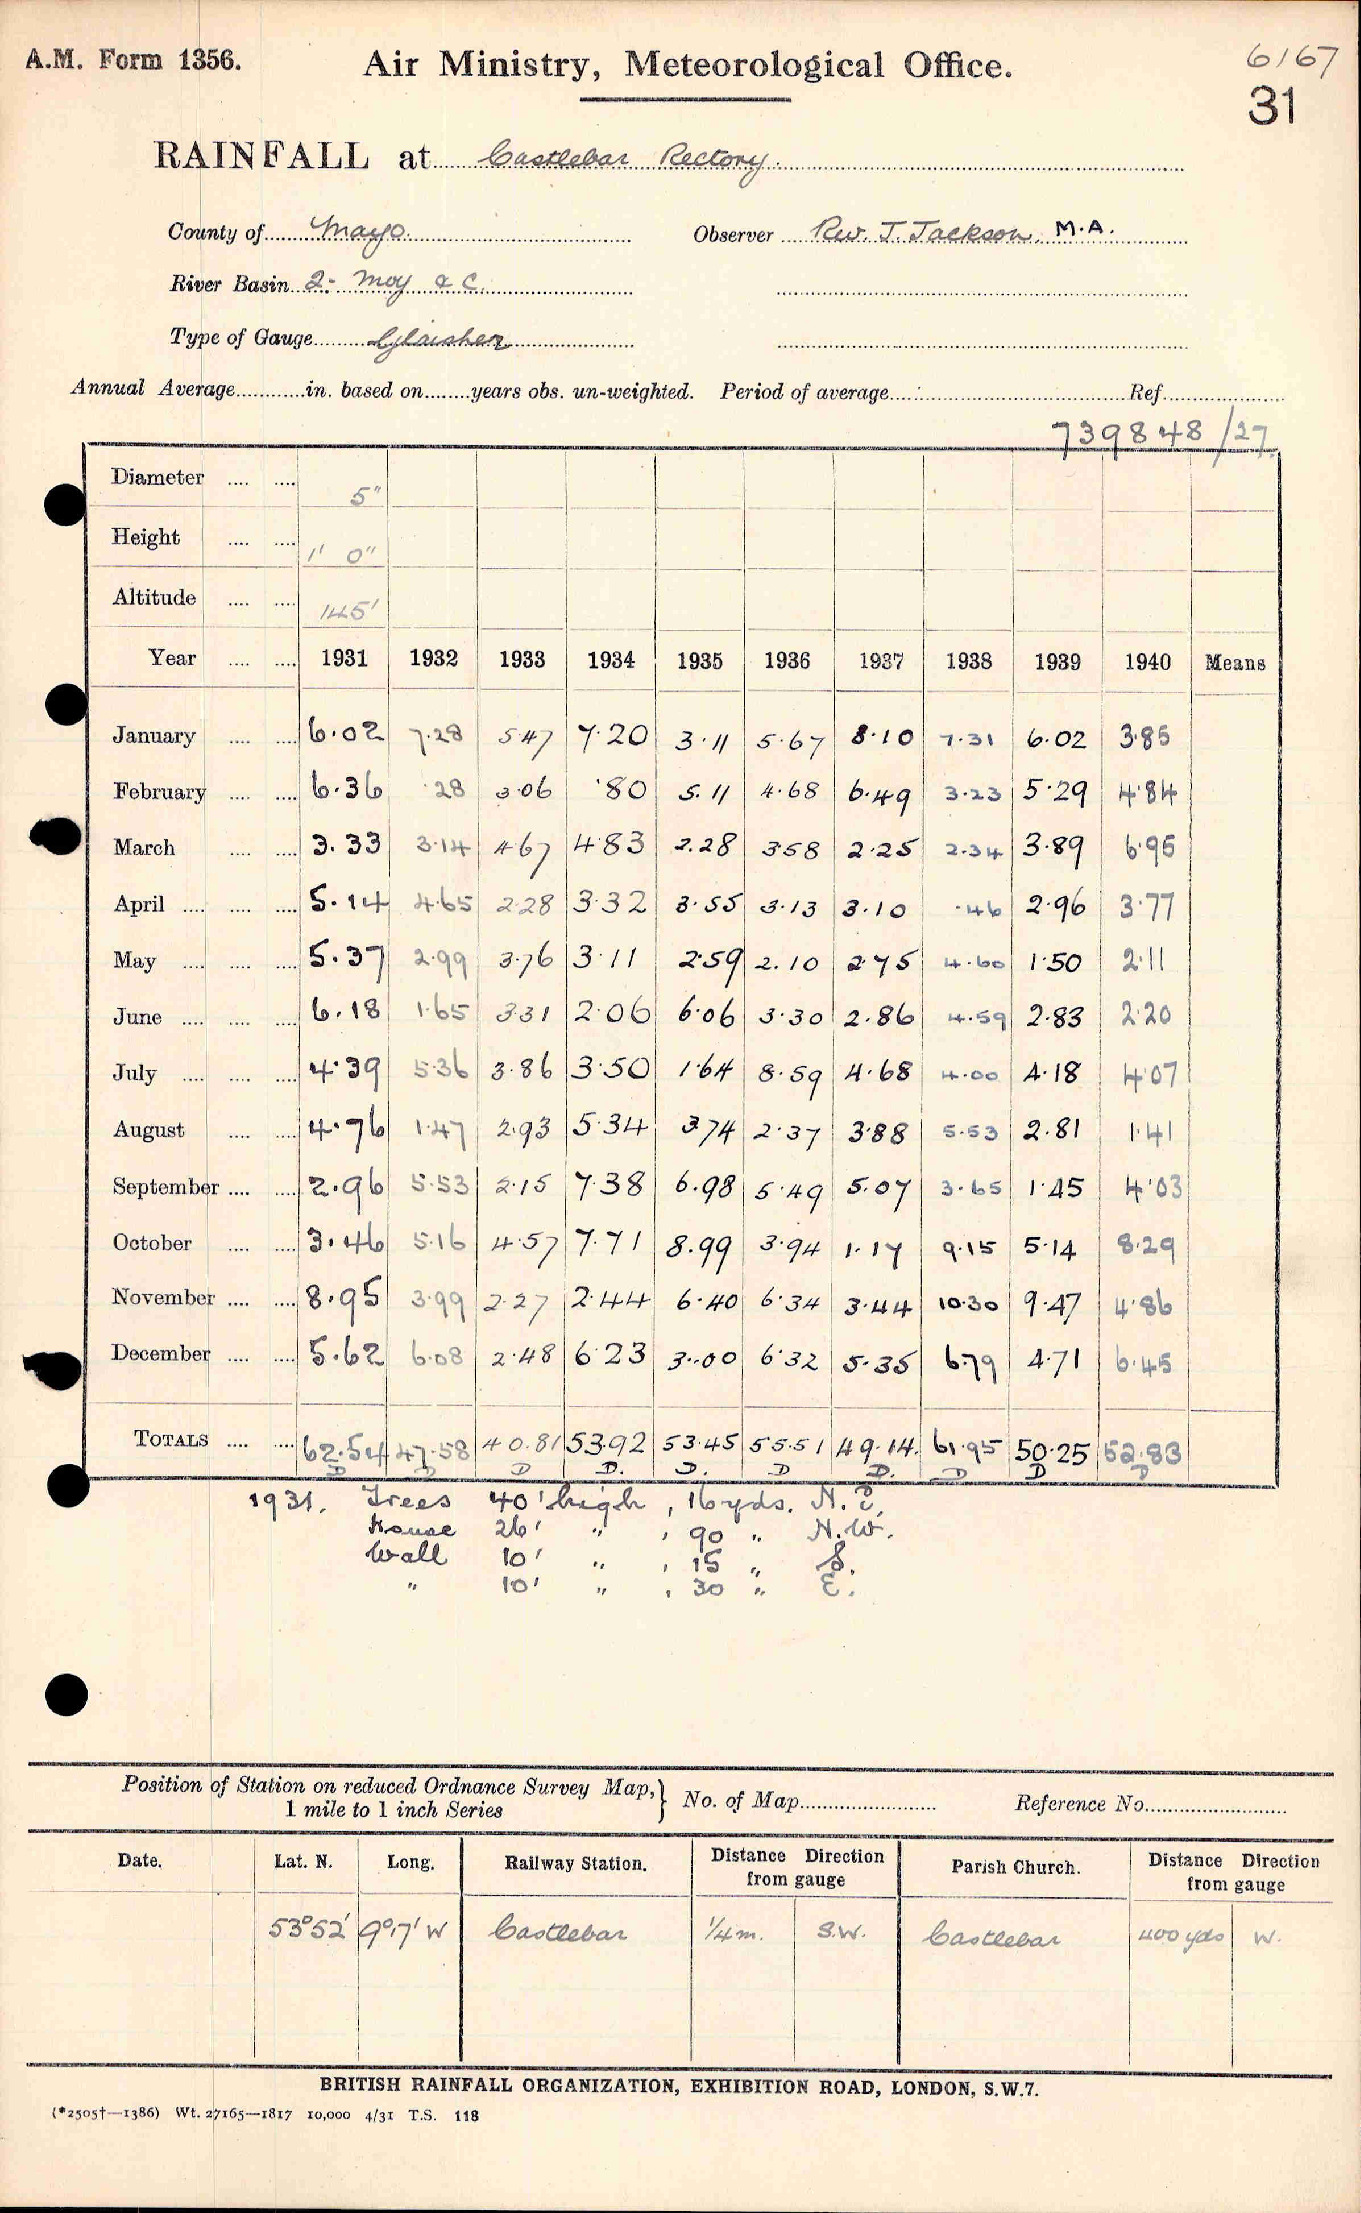 A.M. Form 1356.
Air Ministry, Meteorological Office.
6167
31
RAINFALL at Castlebar Rectory.
County of Mayo. Observer Rev. J. Jackson. M.A.
River Basin 2 - Moy & C.
Type of Gauge Glaisher
Annual Average............in. based on........years obs. un-weighted. Period of average.... Ref.
739848/27.
Diameter .... .... 5"
Height .... .... 1' 0"
Altitude .... .... 145'
Year .... .... 1931 1932 1933 1934 1935 1936 1937 1938 1939 1940 Means
January .... .... 6.02 7.28 5.47 7.20 3.11 5.67 8.10 7.31 6.02 3.85
February .... .... 6.36 .28 3.06 .80 5.11 4.68 6.49 3.23 5.29 4.84
March .... .... 3.33 3.14 4.67 4.83 2.28 3.58 2.25 2.34 3.89 6.95
April .... .... .... 5.14 4.65 2.28 3.32 3.55 3.13 3.10 .46 2.96 3.77
May .... .... .... 5.37 2.99 3.76 3.11 2.59 2.10 2.75 4.60 1.50 2.11
June .... .... .... 6.18 1.65 3.31 2.06 6.06 3.30 2.86 4.59 2.83 2.20
July .... .... .... 4.39 5.36 3.86 3.50 1.64 8.59 4.68 4.00 4.18 4.07
August .... .... 4.76 1.47 2.93 5.34 3.74 2.37 3.88 5.53 2.81 1.41
September .... .... 2.96 5.53 2.15 7.38 6.98 5.49 5.07 3.65 1.45 4.03
October .... .... 3.46 5.16 4.57 7.71 8.99 3.94 1.17 9.15 5.14 8.29
November .... .... 8.95 3.99 2.27 2.44 6.40 6.34 3.44 10.30 9.47 4.86
December .... .... 5.62 6.08 2.48 6.23 3.00 6.32 5.35 6.79 4.71 6.45
TOTALS .... .... 62.54 47.58 40.81 53.92 53.45 55.51 49.14. 61.95 50.25 52.83
D D D D. D. D D. D D D
1931. Trees 40' high, 16 yds. N.E.
House 26' " , 90 " N.W.
Wall 10' " , 15 " S.
" 10' " , 30 " E.
Position of Station on reduced Ordnance Survey Map,} No. of Map........................ Reference No.........................
1 mile to 1 inch Series
Date. Lat. N. Long. Railway Station. Distance Direction from gauge Parish Church. Distance Direction from gauge
53°52' 9°17' W Castlebar 1/4 m. S.W. Castlebar 400 yds W.
BRITISH RAINFALL ORGANIZATION, EXHIBITION ROAD, LONDON, S.W.7.
(*2505†—1386) Wt. 27165—1817 10,000 4/31 T.S. 118